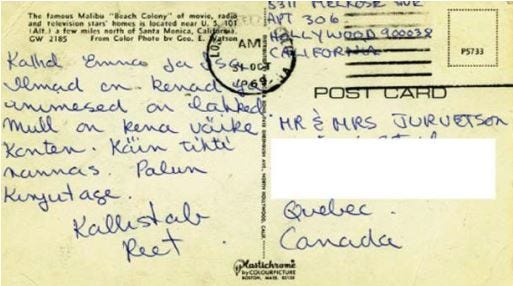 The famous Malibu "Beach Colony" of movie, radio
and television stars' homes is located near U. S. 101
(Alt.) a few miles north of Santa Monica, California.
GW 2185 From Color Photo by Geo. E. Watson
Kallid Emme ja Issi
Ilmad on kenad ja
inimesed on lahked
Mull on kena väike
Korter. Käin tihti
rannas. Palun
Kirjutage.
Kallistab
Reet
AM
31 OCT
1969
5311 MELROSE AVE
APT 306
HOLLYWOOD 900038
CALIFORNIA
P5733
POST CARD
MR & MRS JURVETSON
Quebec.
Canada
Plastichrome
by COLOURPICTURE
BOSTON, MASS. 02130